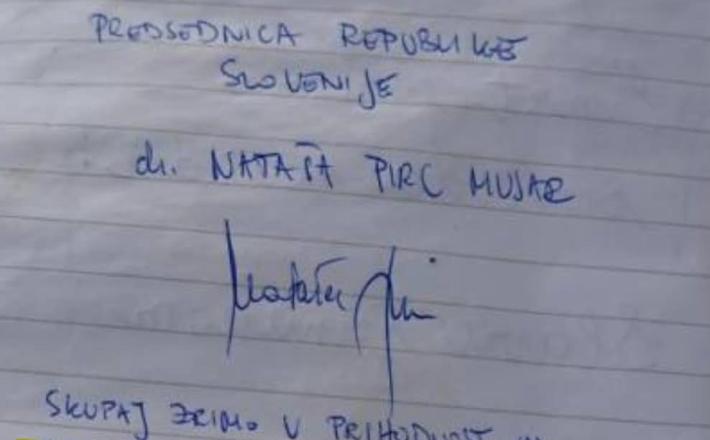 PREDSEDNICA REPUBLIKE
SLOVENIJE
dr. NATAŠA PIRC MUSAR
Nataša
SKUPAJ ZRIMO V PRIHODNOST